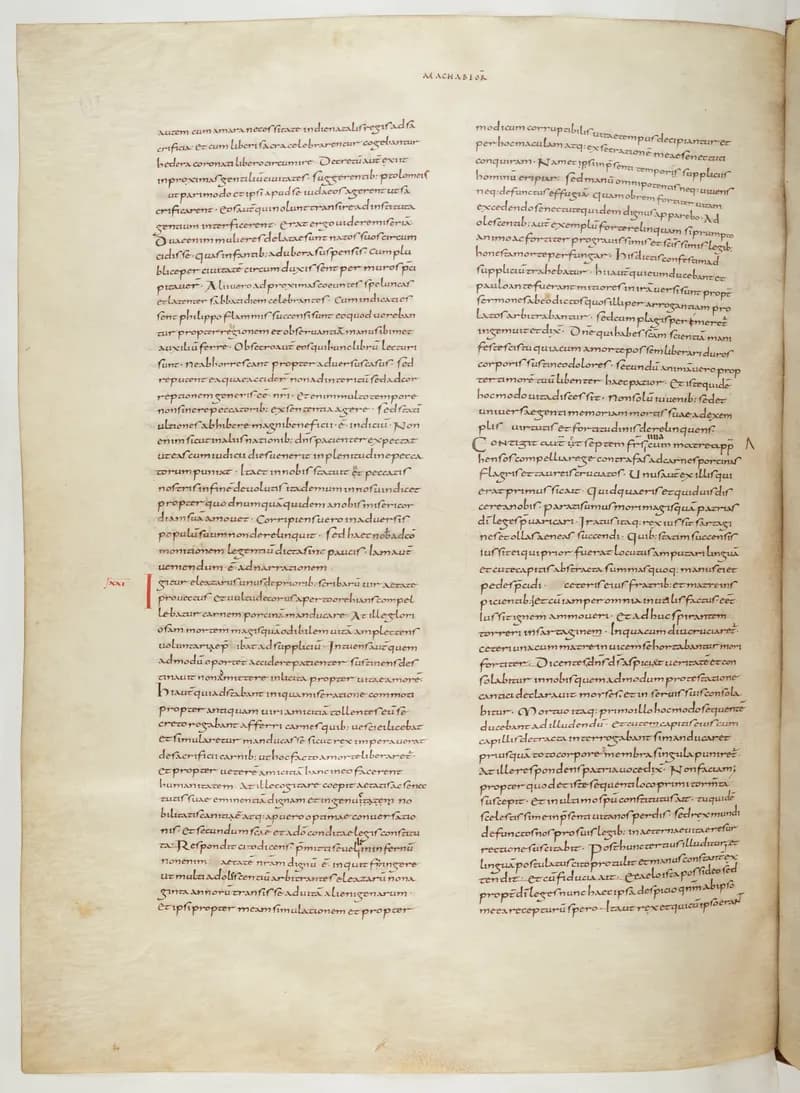 MACHABEOR
autem cum amara necessitate in die natalis regis ad sa
crificia · et cum liberi sacra celebrarentur cogebantur
hedera coronati libero circumire · Decretū aut̄ exiit
in proximas gentiliū ciuitates · suggerentib; ptolomeis
ut pari modo et ipsi apud se iudaeos agerent ut sa
crificarent · eos aut̄ qui nolunt transire ad instituta
gentium interficerent · erat ergo uidere miseriā
Duae enim mulieres delatae sunt natos suos circum
cidisse · quas infantib; ad ubera suspensis cum plu
blice per ciuitatē circumduxissent per muros p̄ci
pitauer̄ · Alii uero ad proximas coeuntes speluncas
et latenter sabbati diem celebrantes · Cum indicati es
sent philippo flammis succensi sunt eo quod uereban
tur propter regionem et obseruantiā manu sibimet
auxiliū ferre · Obsecro aut̄ eos qui hunc librū lecturi
sunt · ne abhorrescant propter aduersus casus · sed
reputent ea quae acciderᷣ non ad interitū sed ad cor
reptionem generis eē n̄ri · Etenim multo tempore
non sinere peccatorib; ex sententia agere · sed statī
ultiones adhibere magni beneficii · ē · indiciū · Non
enim sicut in aliis nationib; dn̄s patienter expectat
ut eas cum iudicii dies uenerit in plenitudine pecca
torum puniat · Ita et in nobis statuit ut peccatis
nostris in finē deuolutis ita demum in nos uindicet
propter quod numquā quidem a nobis misericor
diam suā amouet · Corripiens uero in aduersis
populū suum non derelinquit · sed haec nobis ad cō
monitionem legentiū dicta sint paucis · Iam aut̄
ueniendum · ē · ad narrationem
XXI
Igitur eleazarus unus de priorib; scribarū uir aetate
prouectus et uultu decorus aperto ore hians compel
lebatur carnem porcinā manducare · At ille glori
osam mortem magis quā odibilem uitā amplectens
uoluntariae praeibat ad suppliciū · Intuens aut̄ quem
admodū oportet accidere patienter sustinens des
tinauit non admittere inlicita propter uitae amorē ·
Hi aut̄ qui adstabant iniqua miseratione commoti
propter antiquam uiri amicitiā tollentes eū se
creto rogabant afferri carnes quib; uesci ei licebat
et simularetur manducasse sicut rex imperauerat
de sacrificii carnib; ut hoc facto a morte liberaret
et propter ueterē amicitiā hanc in eo facerent
humanitatem · At ille cogitare coepit aetatis ac senec
tutis suae eminentiā dignam et ingenuitatem no
bilitatis canitiē atq; a puero optimae conuersatio
nis · et secundum sc̄ae et a dō conditae legis constitu
ta · Respondit cito dicens p̄mitti se uelle in infernū
non enim aetate nr̄am dignū · ē · inquit fingere
ut multi adolescentiū arbitrantes eleazarū nona
ginta annorū transisse ad uitā alienigenarum
et ipsi propter meam simulationem et propter
modicum corruptibilis uitae tempus decipiantur et
per hoc maculam atq; exsecrationē meae senectuti
conquiram · Nam et si in p̄senti temporis suppliciis
hominū eripiar · sed manū omnipotentis neq; uiuens
neq; defunctus effugiā · quam obrem fortiter uitam
excedendo senectute quidem dignus apparebo · Ad
olescentib; aut̄ exemplū forte relinquam si prumpto
animo ac fortiter pro grauissimis et sc̄issimis legib;
honesta morte perfungar · His dictis confestim ad
suppliciū trahebatur · hi aut̄ qui eum ducebant et
paulo ante fuerant mitiores in irā uersi sunt propt̄
sermones ab eo dictos quos illi per arrogantiam pro
latos arbitrabantur · sed cum plagis perimeret̄
ingemuit et dix̄ · Dn̄e qui habes sc̄am scientiā mani
feste scis tu quia cum a morte possem liberari duros
corporis sustineo dolores · secundū animā uero prop
ter timorē tuū libenter haec patior · Et iste quidē
hoc modo uita discessit · Non solū iuuenib; sed et
uniuersae genti memoriam mortis suae ad exem
plū uirtutis et fortitudinis derelinquens ·
Contigit aut̄ ut septem fr̄s cum matre appre
hensos compellu a rege contra fas ad carnes porcinas
flagris et taureis cruciatos · Unus aut̄ ex illis qui
erat primus sic ait · Quid quaeris et quid uis dis
cere a nobis · parati sumus mori magis quā patrias
dī leges p̄uaricari · Iratus itaq; rex iussit sartagi
nes et ollas aeneas succendi · Quib; statim succensis
iussit ei qui prior fuerat locutus amputari linguā
et cute capitis abstracta summas quoq; manus ei et
pedes p̄scidi · ceteris eius fratrib; et matre ins
picientib; et cū iam per omnia inutilis factus eēt
iussit ignem ammoueri · et adhuc spirantem
torreri in sartaginem · In qua cum diu cruciaretᷣ ·
ceteri una cum matre inuicem se hortabantur mori
fortiter · Dicentes dn̄s dī aspiciet ueritatē et con
solabitur in nobis quem admodum protestatione
cantici declarauit moyses et in seruis suis consola
bitur · Mortuo itaq; primo illo hoc modo sequentē
ducebant ad illudendū · et cutem capitis eius cum
capillis detracta interrogabant si manducaret
priusquā toto corpore membra singula puniret̄ ·
At ille respondens patria uoce dix̄ · Non faciam;
propter quod et iste sequenti loco primi tormta
suscepit · Et in ultimo sp̄u constitutus ait · tu quidē
scelestissime in p̄senti uita nos perdis · sed rex mundi
defunctos nos pro suis legib; in aeternae uitae resur
rectione suscitabit · Post hunc tertius illuditur et
linguā postulatus cito protulit et manus constanter ex
tendit · et cū fiducia ait · E caelo ista possideo sed
propt̄ dī leges nunc haec ipsa despicio qn̄m ab ipso
me ea recepturū spero · Ita ut rex et qui cū ipso erant